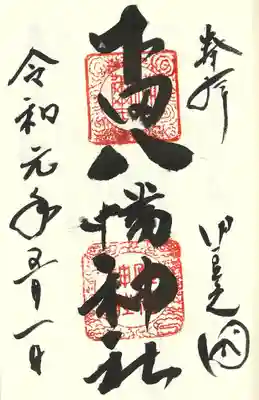 奉拝
伊豆国
八幡神社
令和元年五月一日